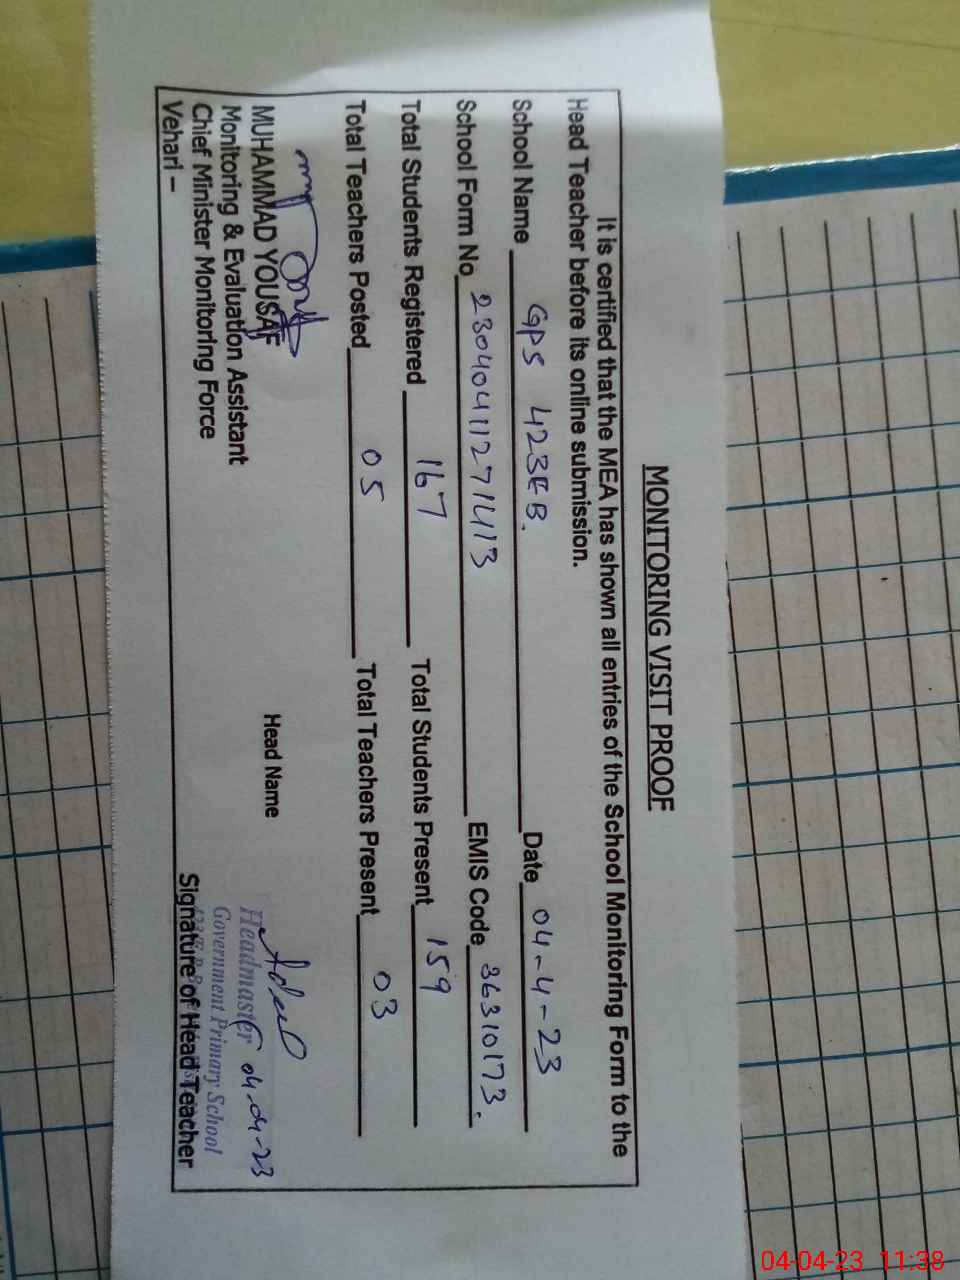 MONITORING VISIT PROOF
It is certified that the MEA has shown all entries of the School Monitoring Form to the
Head Teacher before its online submission.
School Name GPS 423EB. Date 04-4-23
School Form No 23040411271413 EMIS Code 36310173.
Total Students Registered 167 Total Students Present 159
Total Teachers Posted 05 Total Teachers Present 03
MUHAMMAD YOUSAF
Monitoring & Evaluation Assistant
Chief Minister Monitoring Force
Vehari -
Head Name
Headmaster 04-04-23
Government Primary School
Signature of Head Teacher
04-04-23 11:38